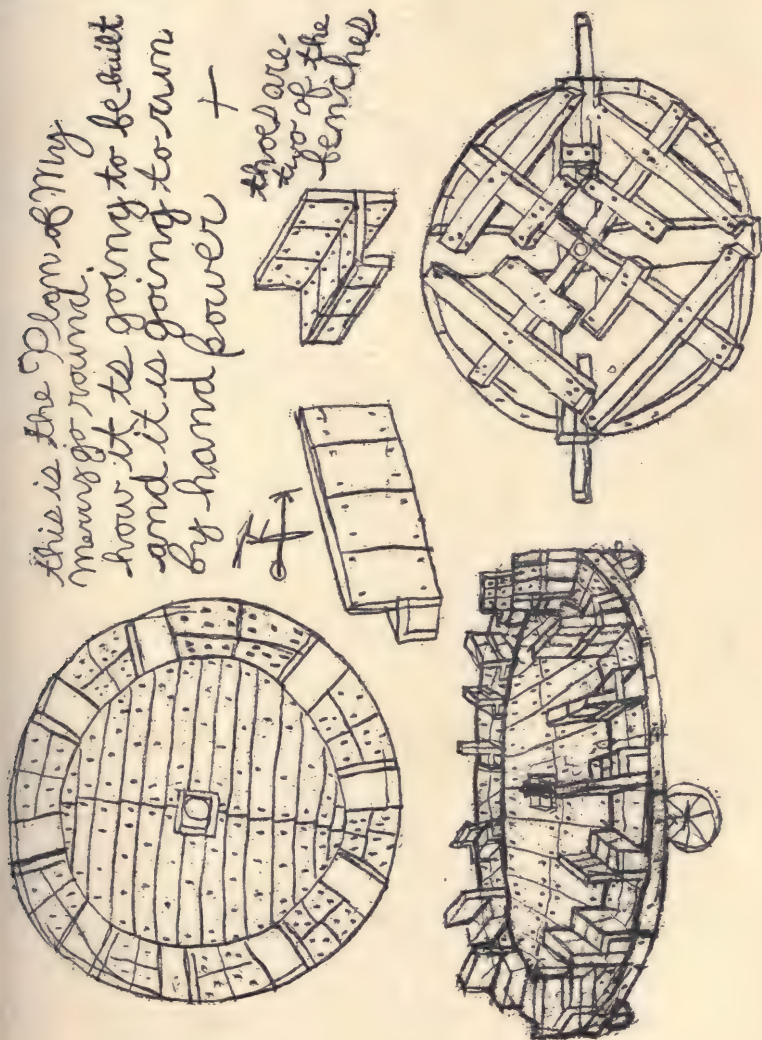 this is the Plan of My
merry go round.
how it ts going to be built
and it is going to run
by hand power +
thoes are
two of the
benches